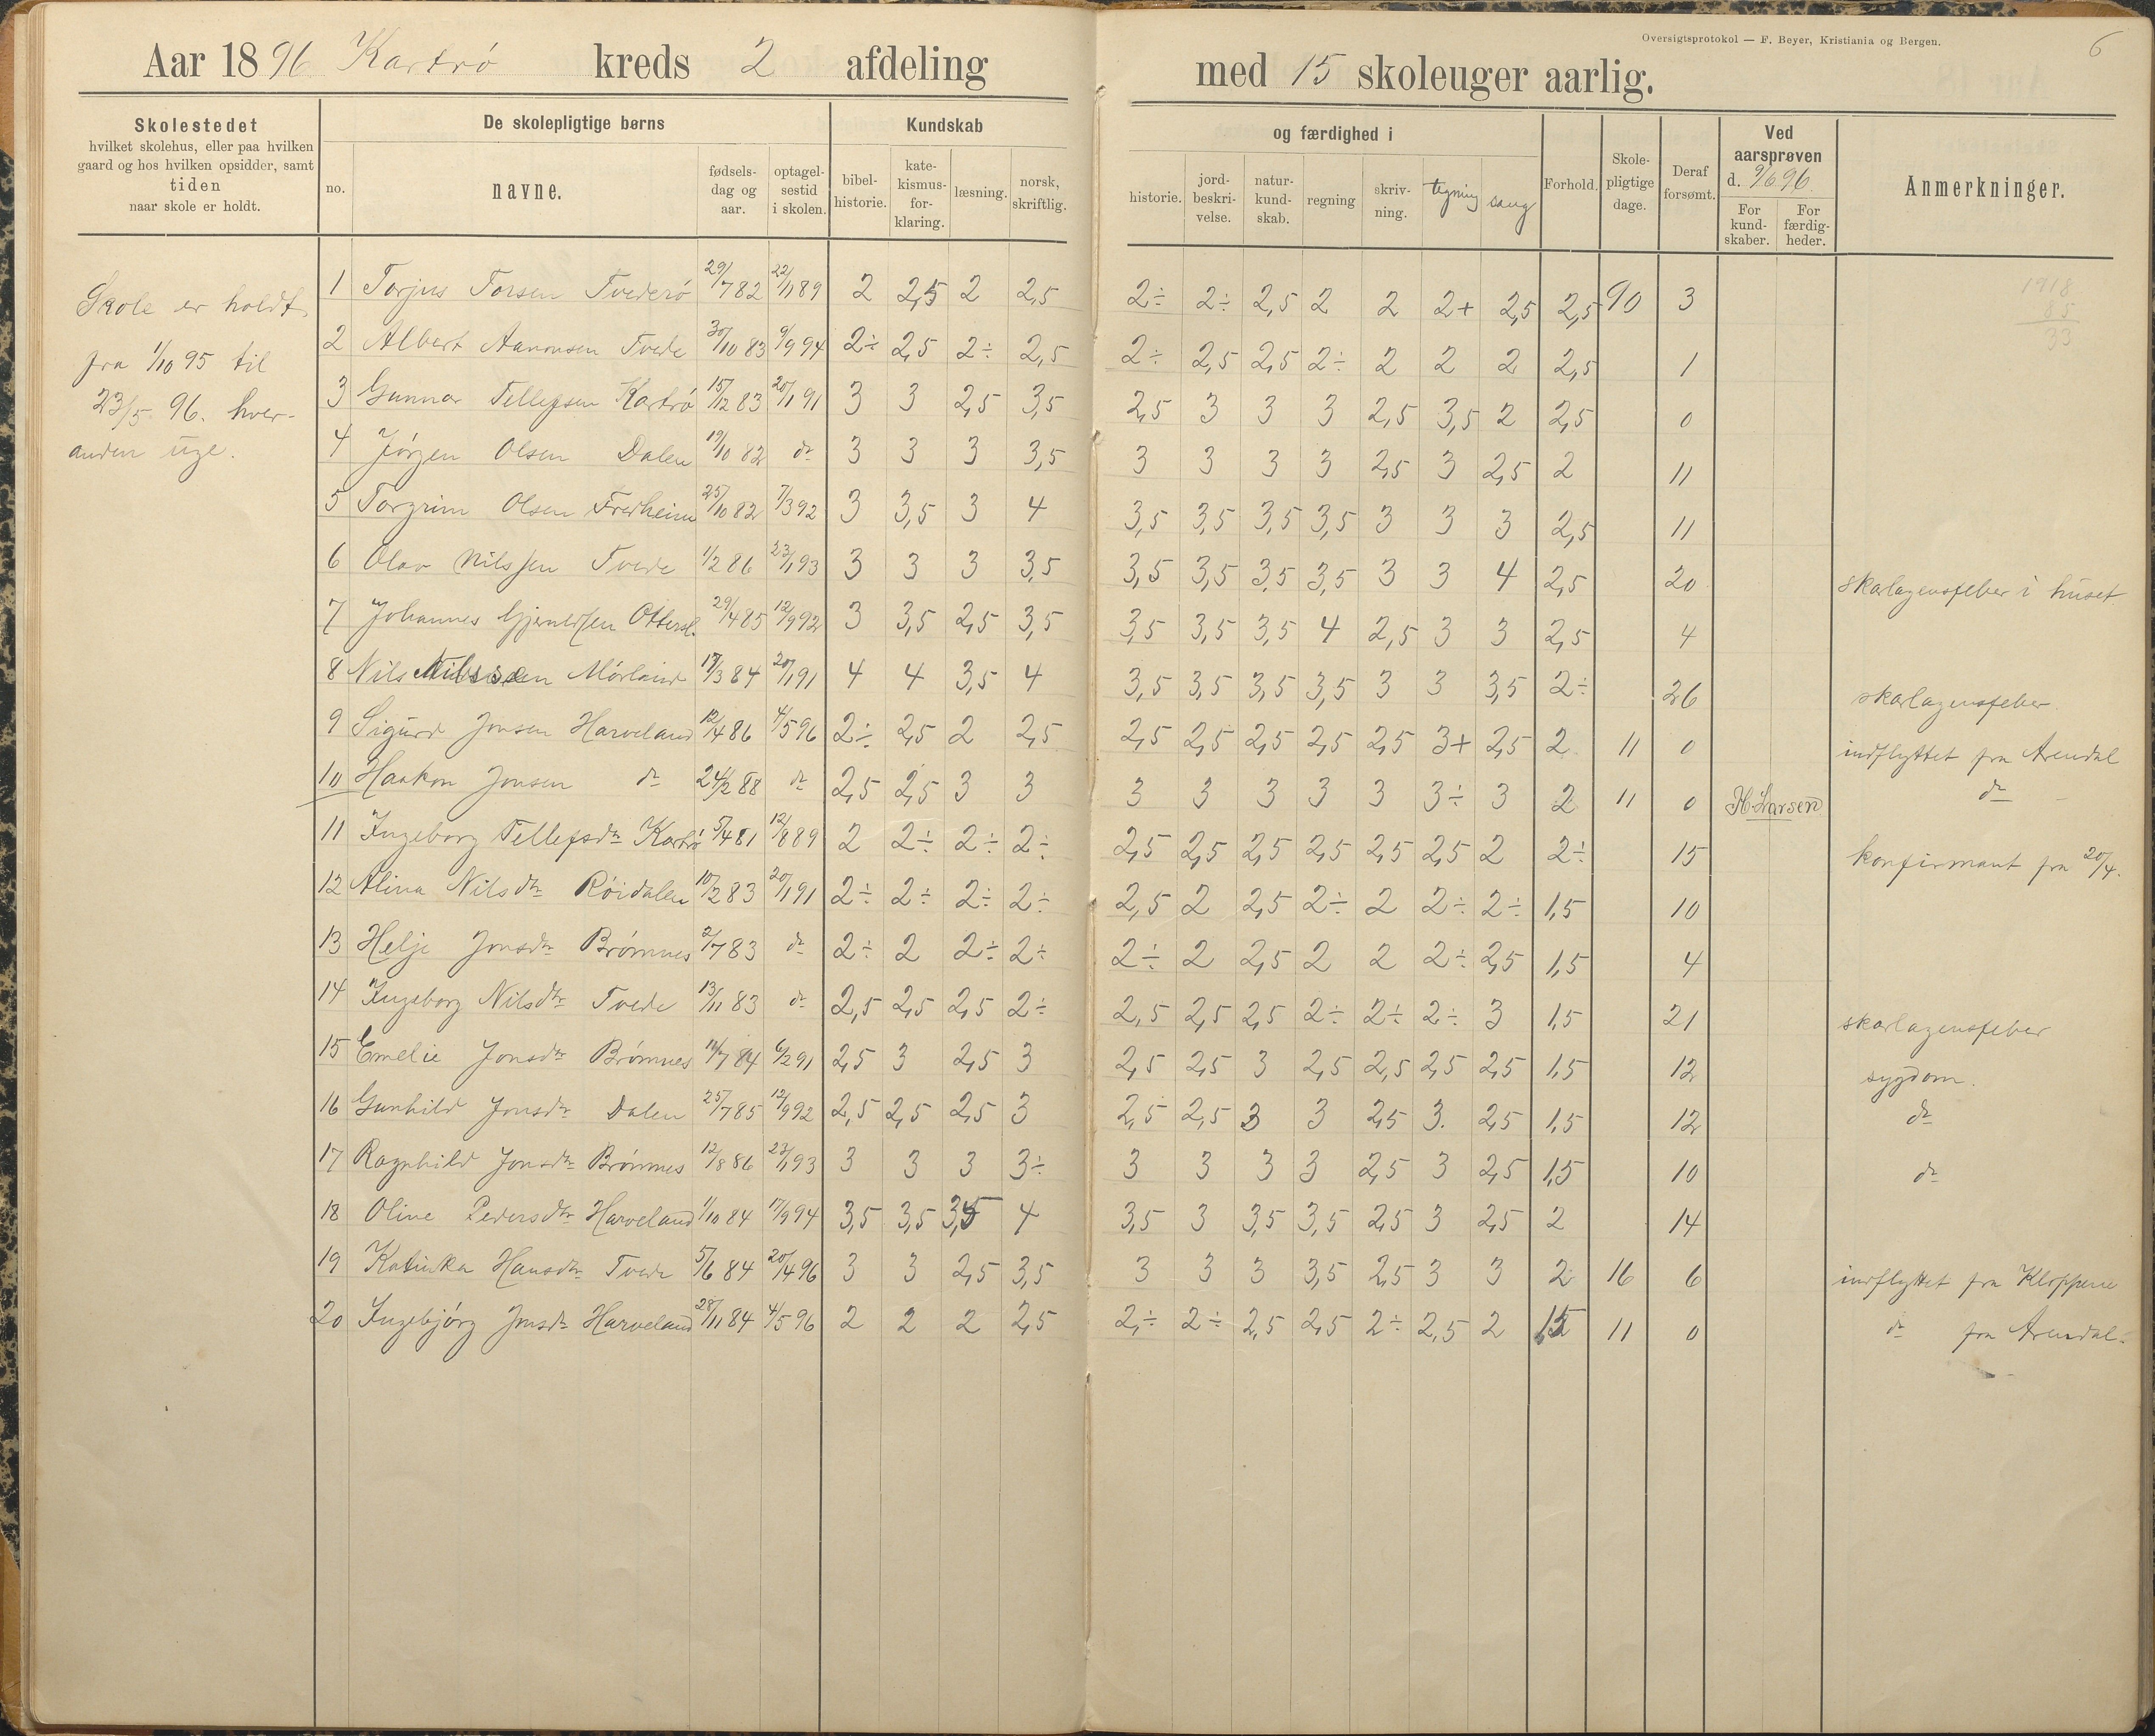 Oversigtsprotokol — F. Beyer, Kristiania og Bergen.
6
Aar 1896 Kartrø kreds 2 afdeling med 15 skoleuger aarlig.
Skolestedet
hvilket skolehus, eller paa hvilken
gaard og hos hvilken opsidder, samt
tiden
naar skole er holdt.
De skolepligtige børns
no.
navne.
fødsels-
dag og
aar.
optagel-
sestid
i skolen.
Kundskab
bibel-
historie.
kate-
kismus-
for-
klaring.
læsning.
norsk,
skriftlig.
og færdighed i
historie.
jord-
beskri-
velse.
natur-
kund-
skab.
regning
skriv-
ning.
tegning
sang
Forhold.
Skole-
pligtige
dage.
Deraf
forsømt.
Ved
aarsprøven
d. 9/6 96.
For
kund-
skaber.
For
færdig-
heder.
Anmerkninger.
Skole er holdt
fra 1/10 95 til
23/5 96. hver-
anden uge.
1918
85
33
1 Torjus Torsen Tvederø 29/7 82 22/1 89 2 2,5 2 2,5 2÷ 2÷ 2,5 2 2 2+ 2,5 2,5 90 3
2 Albert Aanonsen Tvede 30/10 83 9/9 94 2÷ 2,5 2÷ 2,5 2÷ 2,5 2,5 2÷ 2 2 2 2,5 1
3 Gunnar Tellefsen Kartrø 15/12 83 20/1 91 3 3 2,5 3,5 2,5 3 3 3 2,5 3,5 2 2,5 0
4 Jørgen Olsen Dalen 19/10 82 do 3 3 3 3,5 3 3 3 3 2,5 3 2,5 2 11
5 Torgrim Olsen Fredheim 25/10 82 7/3 92 3 3,5 3 4 3,5 3,5 3,5 3,5 3 3 3 2,5 11
6 Olav Nilssen Tvede 1/2 86 23/1 93 3 3 3 3,5 3,5 3,5 3,5 3,5 3 3 4 2,5 20 skarlagensfeber i huset
7 Johannes Gjerulfsen Ottersl. 29/4 85 12/9 92 3 3,5 2,5 3,5 3,5 3,5 3,5 4 2,5 3 3 2,5 4
8 Nils Nilssen Mörland 17/3 84 20/1 91 4 4 3,5 4 3,5 3,5 3,5 3,5 3 3 3,5 2÷ 26 skarlagensfeber
9 Sigurd Jonsen Harveland 12/4 86 4/5 96 2÷ 2,5 2 2,5 2,5 2,5 2,5 2,5 2,5 3+ 2,5 2 11 0 indflyttet fra Arendal
10 Haakon Jonsen do 24/2 88 do 2,5 2,5 3 3 3 3 3 3 3 3÷ 3 2 11 0 H. Larsen do
11 Ingeborg Tellefsdtr Kartrø 5/4 81 12/8 89 2 2÷ 2÷ 2÷ 2,5 2,5 2,5 2,5 2,5 2,5 2 2÷ 15 konfirmant fra 20/4.
12 Alina Nilsdtr Röidalen 10/2 83 20/1 91 2÷ 2÷ 2÷ 2÷ 2,5 2 2,5 2÷ 2 2÷ 2÷ 1,5 10
13 Helje Jonsdtr Brömnes 2/7 83 do 2÷ 2 2÷ 2÷ 2÷ 2 2,5 2 2 2÷ 2,5 1,5 4
14 Ingeborg Nilsdtr Tvede 13/11 83 do 2,5 2,5 2,5 2÷ 2,5 2,5 2,5 2÷ 2÷ 2÷ 3 1,5 21 skarlagensfeber
15 Emelie Jonsdtr Brömnes 14/7 84 6/2 91 2,5 3 2,5 3 2,5 2,5 3 2,5 2,5 2,5 2,5 1,5 12 sygdom.
16 Gunhild Jonsdtr Dalen 25/7 85 12/9 92 2,5 2,5 2,5 3 2,5 2,5 3 3 2,5 3. 2,5 1,5 12 do
17 Ragnhild Jonsdtr Brömnes 12/8 86 23/1 93 3 3 3 3÷ 3 3 3 3 2,5 3 2,5 1,5 10 do
18 Oline Pedersdtr Harveland 1/10 84 17/9 94 3,5 3,5 3,5 4 3,5 3 3,5 3,5 2,5 3 2,5 2 14
19 Katinka Hansdtr Tvede 5/6 84 20/4 96 3 3 2,5 3,5 3 3 3 3,5 2,5 3 3 2 16 6 indflyttet fra Kloppene
20 Ingebjörg Jonsdtr Harveland 28/11 84 4/5 96 2 2 2 2,5 2,÷ 2÷ 2,5 2,5 2÷ 2,5 2 1,5 11 0 do fra Arendal.